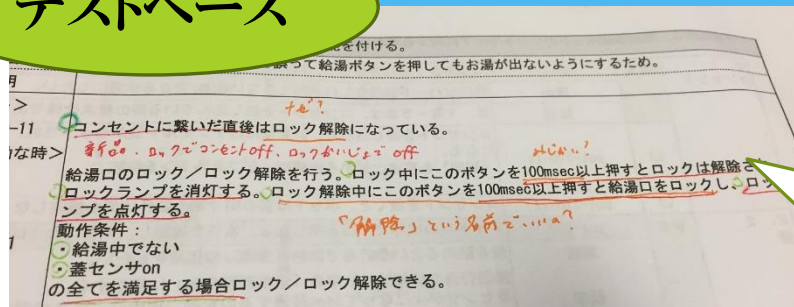 テストベース
を付ける。
って給湯ボタンを押してもお湯が出ないようにするため。
>
-11
ナゼ?
コンセントに繋いだ直後はロック解除になっている。
な時>
新品、ロックでコンセントoff、ロックかいじょで off
みじかい?
給湯口のロック/ロック解除を行う。ロック中にこのボタンを100msec以上押すとロックは解除さ
ロックランプを消灯する。ロック解除中にこのボタンを100msec以上押すと給湯口をロックし、ロッ
ンプを点灯する。
「解除」という名前でいいの?
動作条件:
1
・給湯中でない
・蓋センサon
の全てを満足する場合ロック/ロック解除できる。